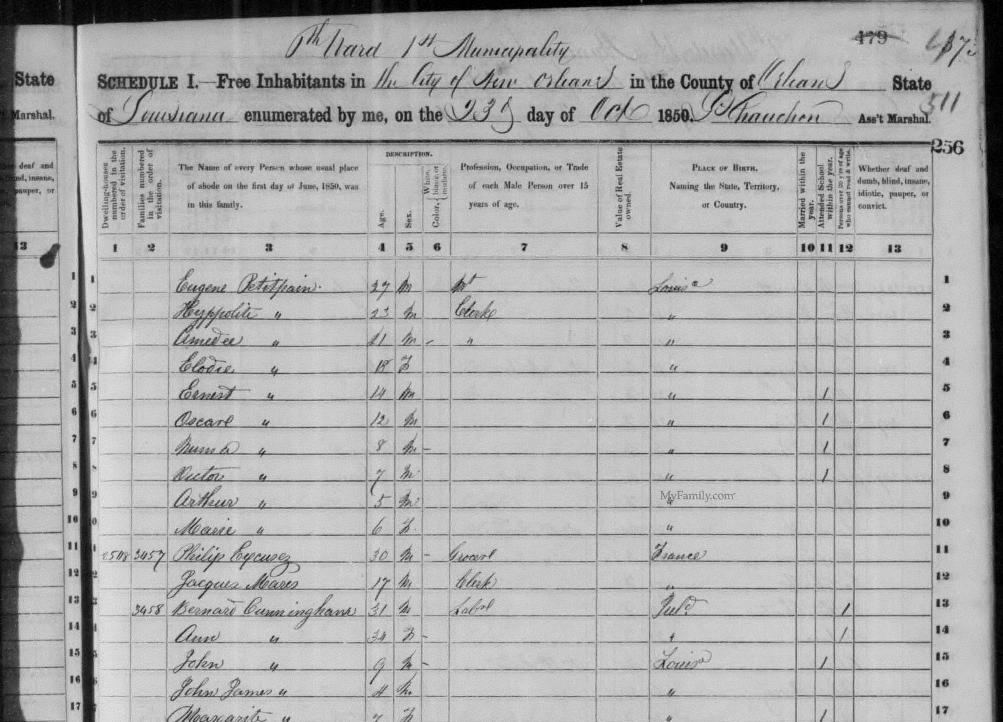 6th Ward 1st Municipality
479
State
SCHEDULE I.—Free Inhabitants in the City of New Orleans in the County of Orleans State
of Louisiana enumerated by me, on the 23d day of Oct 1850. Ass't Marshal.
511
Marshal.
256
DESCRIPTION.
Dwelling-houses numbered in the order of visitation.
Families numbered in the order of visitation.
The Name of every Person whose usual place of abode on the first day of June, 1850, was in this family.
Age.
Sex.
Color, White, black, or mulatto.
Profession, Occupation, or Trade of each Male Person over 15 years of age.
Value of Real Estate owned.
PLACE OF BIRTH. Naming the State, Territory, or Country.
Married within the year.
Attended School within the year.
Persons over 20 y'rs of age who cannot read & write.
Whether deaf and dumb, blind, insane, idiotic, pauper, or convict.
13 1 2 3 4 5 6 7 8 9 10 11 12 13
1 1 Eugene Petitpain 27 m Louisa 1
2 2 Hyppolite " 23 m Clerk " 2
3 3 Amedee " 21 m " " 3
4 4 Elodie " 18 F " 4
5 5 Ernest " 14 m " 1 5
6 6 Oscare " 12 m " 1 6
7 7 " 8 m " 1 7
8 8 Victor " 7 m " 1 8
9 9 Arthur " 5 m " 9
MyFamily.com
10 10 Marie " 6 F " 10
11 11 3457 Philip 30 m France 11
12 12 Jacques Mares 17 m Clerk " 12
13 13 3458 Bernard Cunningham 31 m Labor 1 13
14 14 Ann " 34 F " 1 14
15 15 John " 9 m Louisa 1 15
16 16 John James " 4 m " 16
17 17 Margarite " 7 F " 1 17